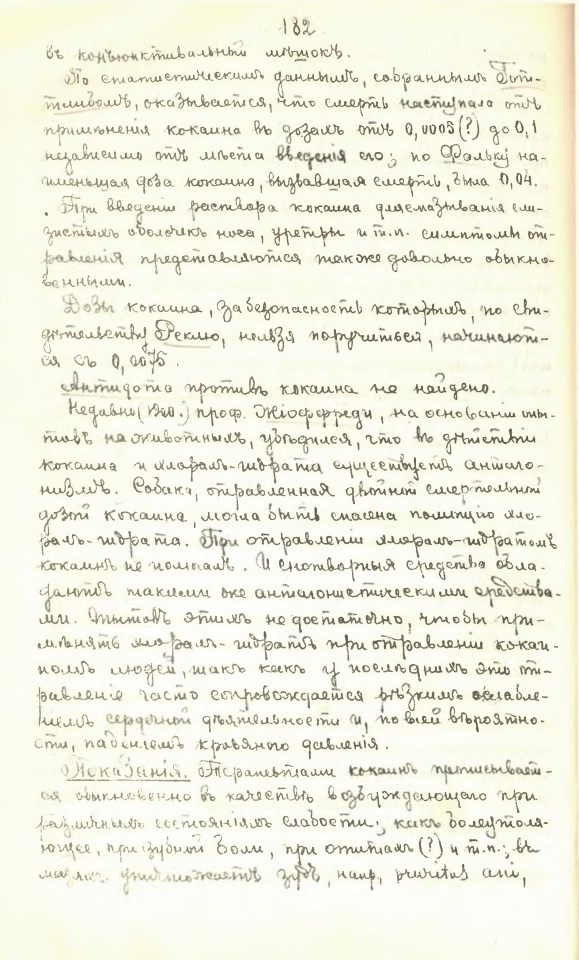 182
въ конъюнктивальный мѣшокъ.
По статистическимъ даннымъ, собраннымъ Гот-
тлибомъ, оказывается, что смерть наступала отъ
примѣненія кокаина въ дозахъ отъ 0,0005(?) до 0,1
независимо отъ мѣста введенія его; по Фальку на-
именьшая доза кокаина, вызвавшая смерть, была 0,04.
При введеніи раствора кокаина для смазыванія сли-
зистыхъ оболочекъ носа, уретры и т.п. симптомы от-
равленія представляются также довольно обыкно-
венными.
Дозы кокаина, за безопасность которыхъ, по сви-
дѣтельству Реклю, нельзя поручиться, начинают-
ся съ 0,0075.
Антидота противъ кокаина не найдено.
Недавно проф. Жіоффреди, на основаніи опы-
товъ на животныхъ, убѣдился, что въ дѣйствіи
кокаина и хлоралъ-гидрата существуетъ антаго-
низмъ. Собака, отравленная двойной смертельной
дозой кокаина, могла быть спасена помощію хло-
ралъ-гидрата. При отравленіи хлоралъ-гидратомъ
кокаинъ не помогалъ. И снотворныя средства обла-
даютъ такими же антагонистическими средства-
ми. Опытовъ этихъ недостаточно, чтобы при-
мѣнять хлоралъ-гидратъ при отравленіи кокаи-
номъ людей, такъ какъ у послѣднихъ это от-
равленіе часто сопровождается рѣзкимъ ослабле-
ніемъ сердечной дѣятельности и, по всей вѣроятно-
сти, паденіемъ кровяного давленія.
Показанія. Терапевтами кокаинъ прописывает-
ся обыкновенно въ качествѣ возбуждающаго при
различныхъ состояніяхъ слабости; какъ болеутоля-
ющее, при зубной боли, при отитахъ(?) и т.п.; въ
мазяхъ уничтожаетъ зудъ, напр. pruritus ani,